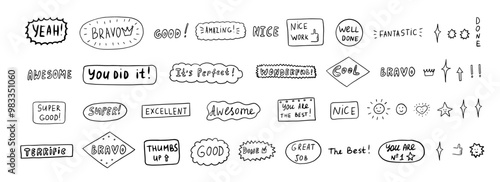 YEAH!
BRAVO
GOOD!
AMAZING!
NICE
NICE
WORK
WELL
DONE
FANTASTIC
DONE
AWESOME
You did it!
It's Perfect!
WONDERFUL!
COOL
BRAVO
!!
SUPER
GOOD!
SUPER!
EXCELLENT
Awesome
YOU ARE
THE BEST!
NICE
TERRIFIC
BRAVO
THUMBS
UP
GOOD
GREAT
JOB
The Best!
YOU ARE
Nº1
Adobe Stock | #983351060